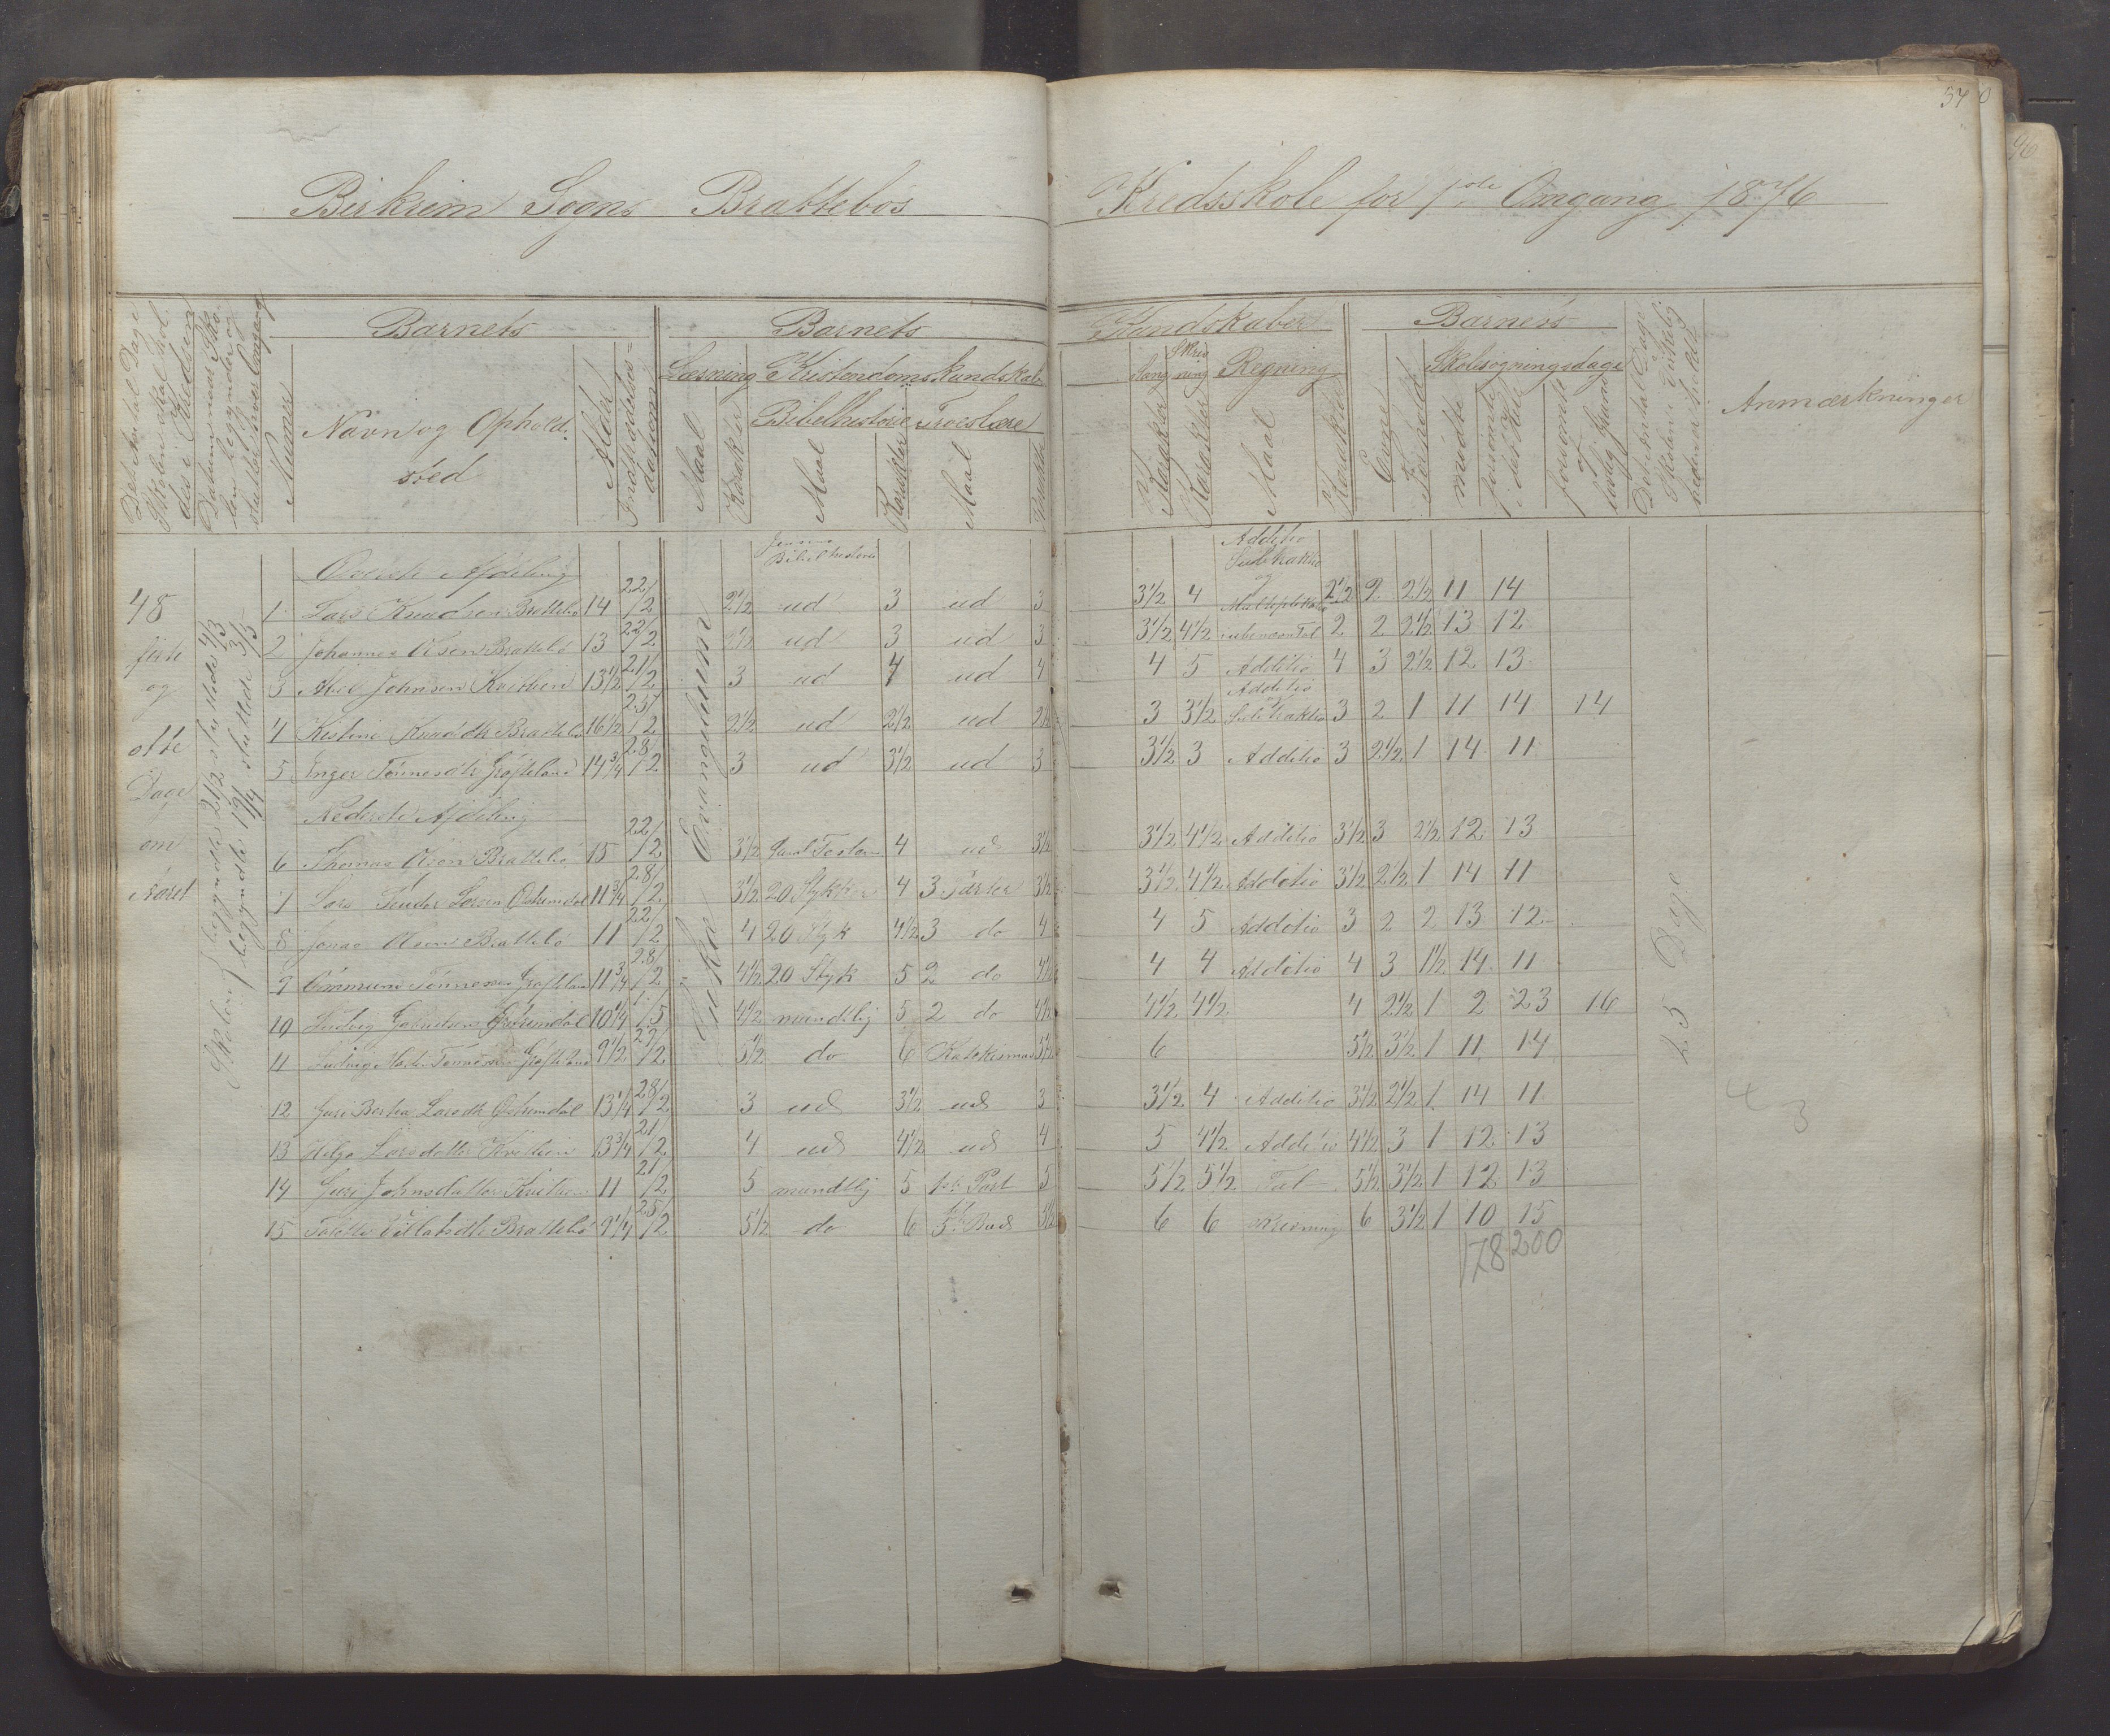 57
Birkrem Sogns Brattebøs Kredsskole for 1ste Omgang 1876
Barnets Barnets Kundskaber Barnets
Læsning Kristendomskundskab Sang Skrivning Regning Skolesøgningsdage
Bibelhistorie Troeslære
Det Antal Dage Skolen skal holdes i Kredsen
Numer
Navn og Opholdsted
Alder
Indtrædelsesdatum
Maal Karakter Maal Karakter Maal Karakter
Karakter Karakter Maal Karakter Evne Forhold mødte forsømte i det Hele forsømte af lovlig Grund
Det Antal Dage Skolen virkelig holdt
Anmærkninger
48 første og otte Dage om Aaret
Skolen begyndte 21/2 sluttede 4/3
begyndte 19/4 sluttede 3/5
Lukas Evangelium
25 Dage
Øverste Afdeling
1 Lars Knudsen Brattebø 14 22/2 2½ Jensens Bibelhistorie ud 3 ud 3 3½ 4 Additio Subtraktio og Multiplikatio 2½ 2 2½ 11 14
2 Johannes Olsen Brattebø 13 22/2 2½ ud 3 ud 3 3½ 4½ i ubenævn Tal 2 2 2½ 13 12
3 Abel Johnsen Kvitlien 13½ 21/2 3 ud 4 ud 4 4 5 Additio 4 3 2½ 12 13
4 Kistine Knudsdtr Brattebø 16½ 25/2 2½ ud 2½ ud 2½ 3 3½ Additio og Subtraktio 3 2 1 11 14 14
5 Enger Tønnesdtr Grøfteland 14¾ 28/2 3 ud 3½ ud 3 3½ 3 Additio 3 2½ 1 14 11
Nederste Afdeling
6 Thomas Olsen Brattebø 15 22/2 3½ Gaml Testam 4 ud 3½ 3½ 4½ Additio 3½ 3 2½ 12 13
7 Lars Teodor Larsen 11¾ 28/2 3½ 20 Stykker 4 3 Parter 3½ 3½ 4½ Additio 3½ 2½ 1 14 11
8 Jonas Olsen Brattebø 11 22/2 4 20 Styk 4½ 3 do 4 4 5 Additio 3 2 2 13 12
9 Tønnesen Grøfteland 11¾ 28/2 4½ 20 Styk 5 2 do 4½ 4 4 Additio 4 3 1½ 14 11
10 Ludvig Gabrielsen 10¼ 1/5 4½ mundtlig 5 2 do 4½ 4½ 4½ 4 2½ 1 2 23 16
11 Ludvig Tønnesen Grøfteland 9½ 5½ do 6 Katekismus 5½ 6 5½ 3½ 1 11 14
12 Guri Berta Larsdtr 13¼ 28/2 3 ud 3½ ud 3 3½ 4 Additio 3½ 2½ 1 14 11
13 Helga Larsdatter Kvitlien 13¾ 21/2 4 ud 4½ ud 4 5 4½ Additio 4½ 3 1 12 13
14 Guri Johnsdatter Kvitlien 11 21/2 5 mundtlig 5 1ste Part 5 5½ 5½ Tal 5½ 3½ 1 12 13
15 Brattebø 9¼ 25/2 5½ do 6 5te Bud 5½ 6 6 Skrivning 6 3½ 1 10 15
178 200
4
3